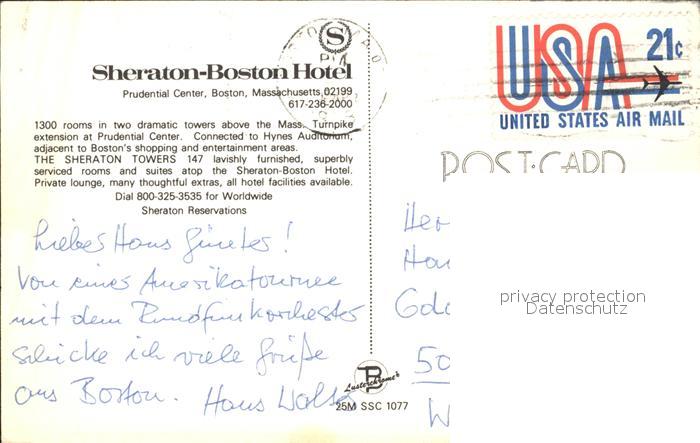 Sheraton-Boston Hotel
Prudential Center, Boston, Massachusetts 02199
617-236-2000
1300 rooms in two dramatic towers above the Mass. Turnpike
extension at Prudential Center. Connected to Hynes Auditorium,
adjacent to Boston's shopping and entertainment areas.
THE SHERATON TOWERS 147 lavishly furnished, superbly
serviced rooms and suites atop the Sheraton-Boston Hotel.
Private lounge, many thoughtful extras, all hotel facilities available.
Dial 800-325-3535 for Worldwide
Sheraton Reservations
Lieber Hans Günter!
Von einer Amerikatournee
mit dem Rundfunkorchester
schicke ich viele Grüße
aus Boston. Hans Walter
Lusterchrome
25M SSC 1077
USA 21c
UNITED STATES AIR MAIL
POST-CARD
Her
Han
50
W
privacy protection
Datenschutz